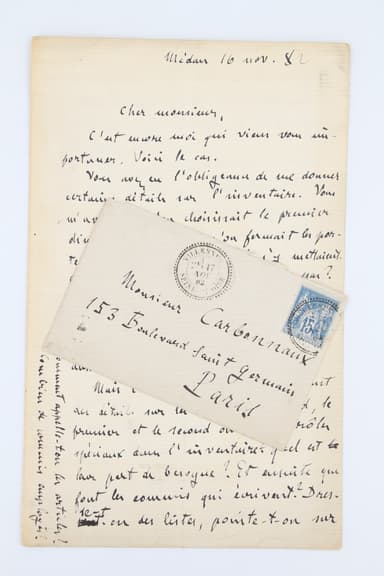 Médan 16 nov. 82
Cher monsieur,
C'est encore moi qui viens vous im-
portuner. Voici le cas.
Vous avez eu l'obligeance de me donner
certains détails sur l'inventaire. Vous
m'avez choisissait le premier
fermait les por-
mettaient
VILLENNES
17
NOV
82
SEINE-ET-OISE
15
Monsieur Carbonnaux
153 Boulevard Saint Germain
Paris
Mais
des détails sur les le
premier et le second
spéciaux dans l'inventaire: quel est
leur part de besogne? Et ensuite que
font les commis qui écrivent? Dres-
se-t-on des listes, pointe-t-on sur
Comment appelle-t-on les articles?
Combien de commis employés?